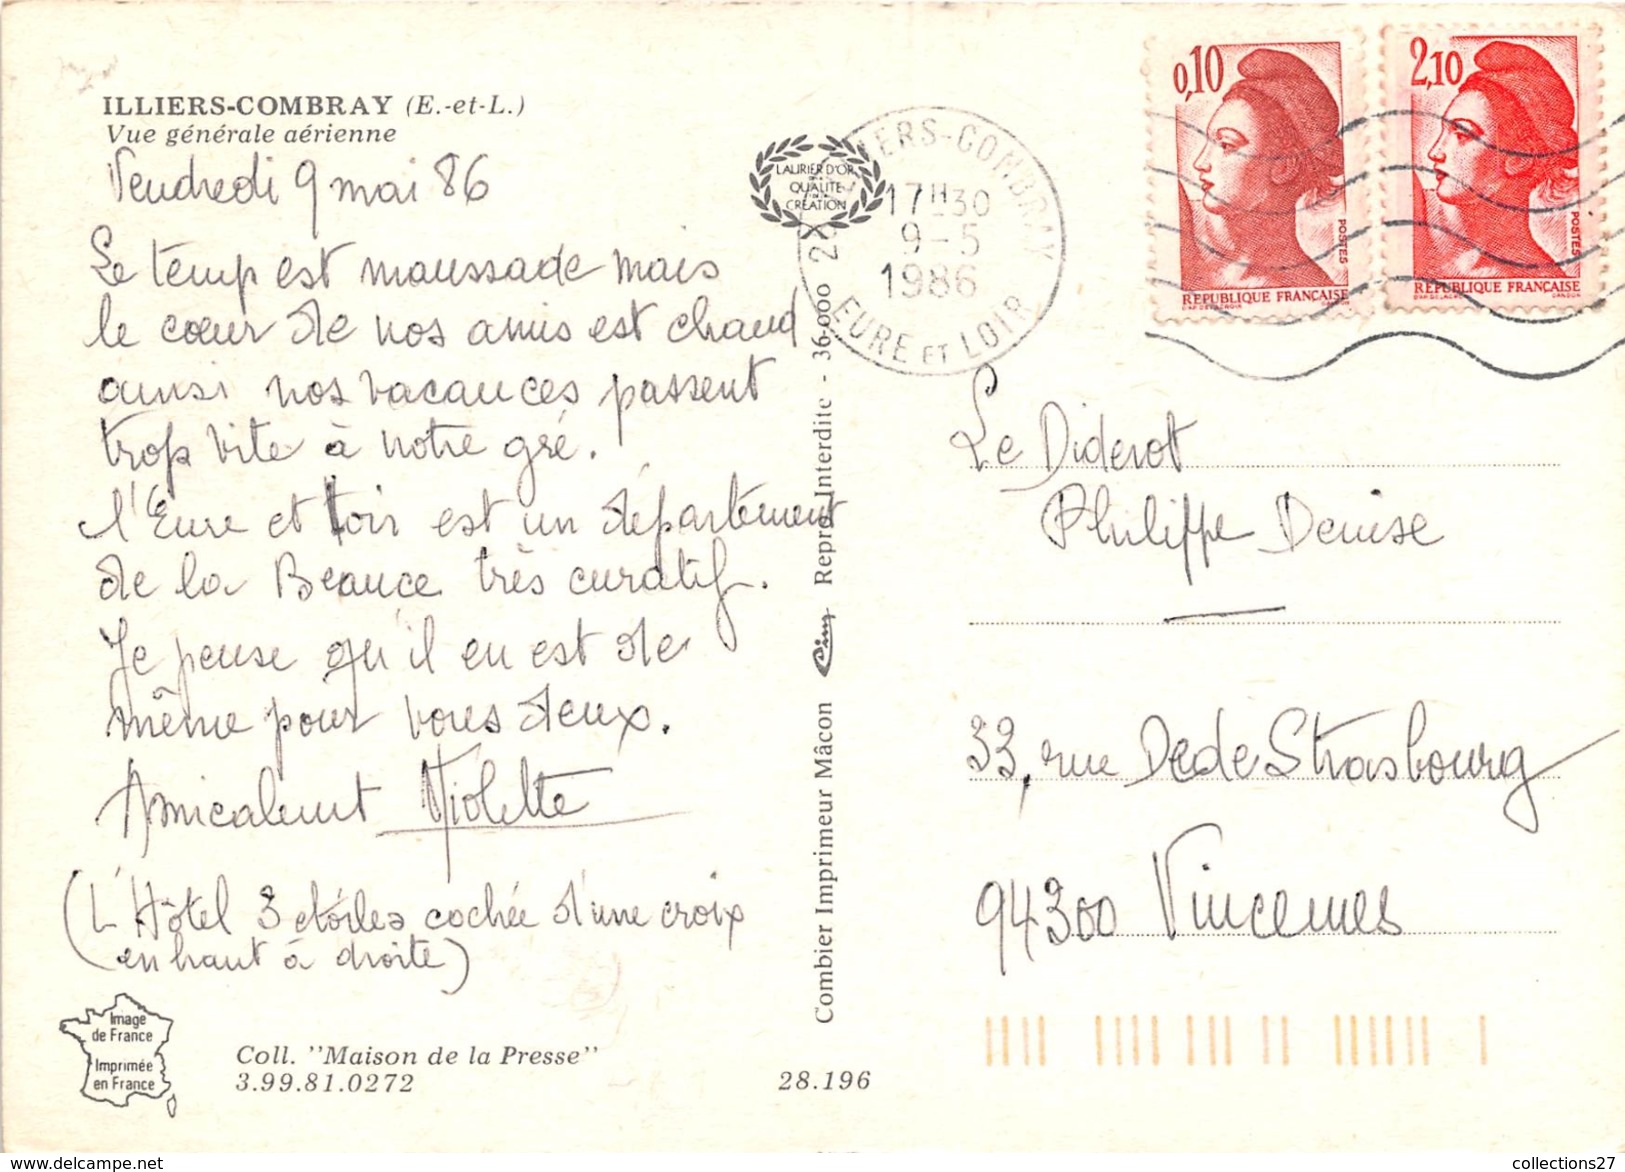 ILLIERS-COMBRAY (E.-et-L.)
Vue générale aérienne
Vendredi 9 mai 86
Le temp est maussade mais
le coeur de nos amis est chaud
ainsi nos vacances passent
trop vite à notre gré.
l'Eure et Loir est un département
de la Beauce très curatif.
Je pense qu'il en est de
même pour vous deux.
Amicalement Violette
(L'Hôtel 3 étoiles cochée d'une croix
en haut à droite)
Image
de France
Imprimée
en France
Coll. "Maison de la Presse"
3.99.81.0272
28.196
Combier Imprimeur Mâcon Cim Repro Interdite - 36 000
LAURIER D'OR
QUALITE
CREATION
28 ILLIERS-COMBRAY
17H30
9-5
1986
EURE ET LOIR
0,10
POSTES
REPUBLIQUE FRANÇAISE
2,10
POSTES
REPUBLIQUE FRANÇAISE
Le Diderot
Philippe Denise
33, rue De de Strasbourg
94300 Vincennes
collections27